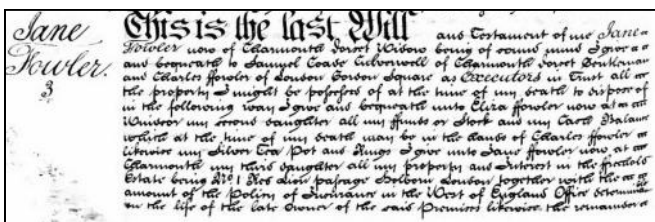 Jane
Fowler.
3
This is the last Will and Testament of me Jane
Fowler now of Charmouth Dorset Widow being of sound mind I give
and bequeath to Samuel Coade Culverwell of Charmouth Dorset Gentleman
and Charles ffowler of London Gordon Square as Executors in Trust all
the property I might be possessed of at the time of my death to dispose of
in the following way I give and bequeath unto Eliza ffowler now at
Windsor my second daughter all my ffunds or Stock and my Cash Balance
which at the time of my death may be in the hands of Charles ffowler
likewise my Silver Tea Pot and Rings I give unto Jane ffowler now at
Charmouth my third daughter all my property and Interest in the freehold
Estate being No 1 Red Lion passage Holborn London together with the
amount of the Policy of Insurance in the West of England Office
on the life of the late Owner of the said Premises likewise the remainder